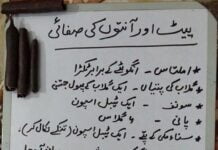 پیٹ اور آنتوں کی صفائی
املتاس - انگوٹھے کے برابر ٹکڑا
گلاب کی پتیاں - ایک گلاب کے پھول جتنی
سونف - ایک ٹیبل اسپون
پانی - گلاس
سنامکی کے پتے - ایک ٹیبل اسپون (تنکے نکال کر)